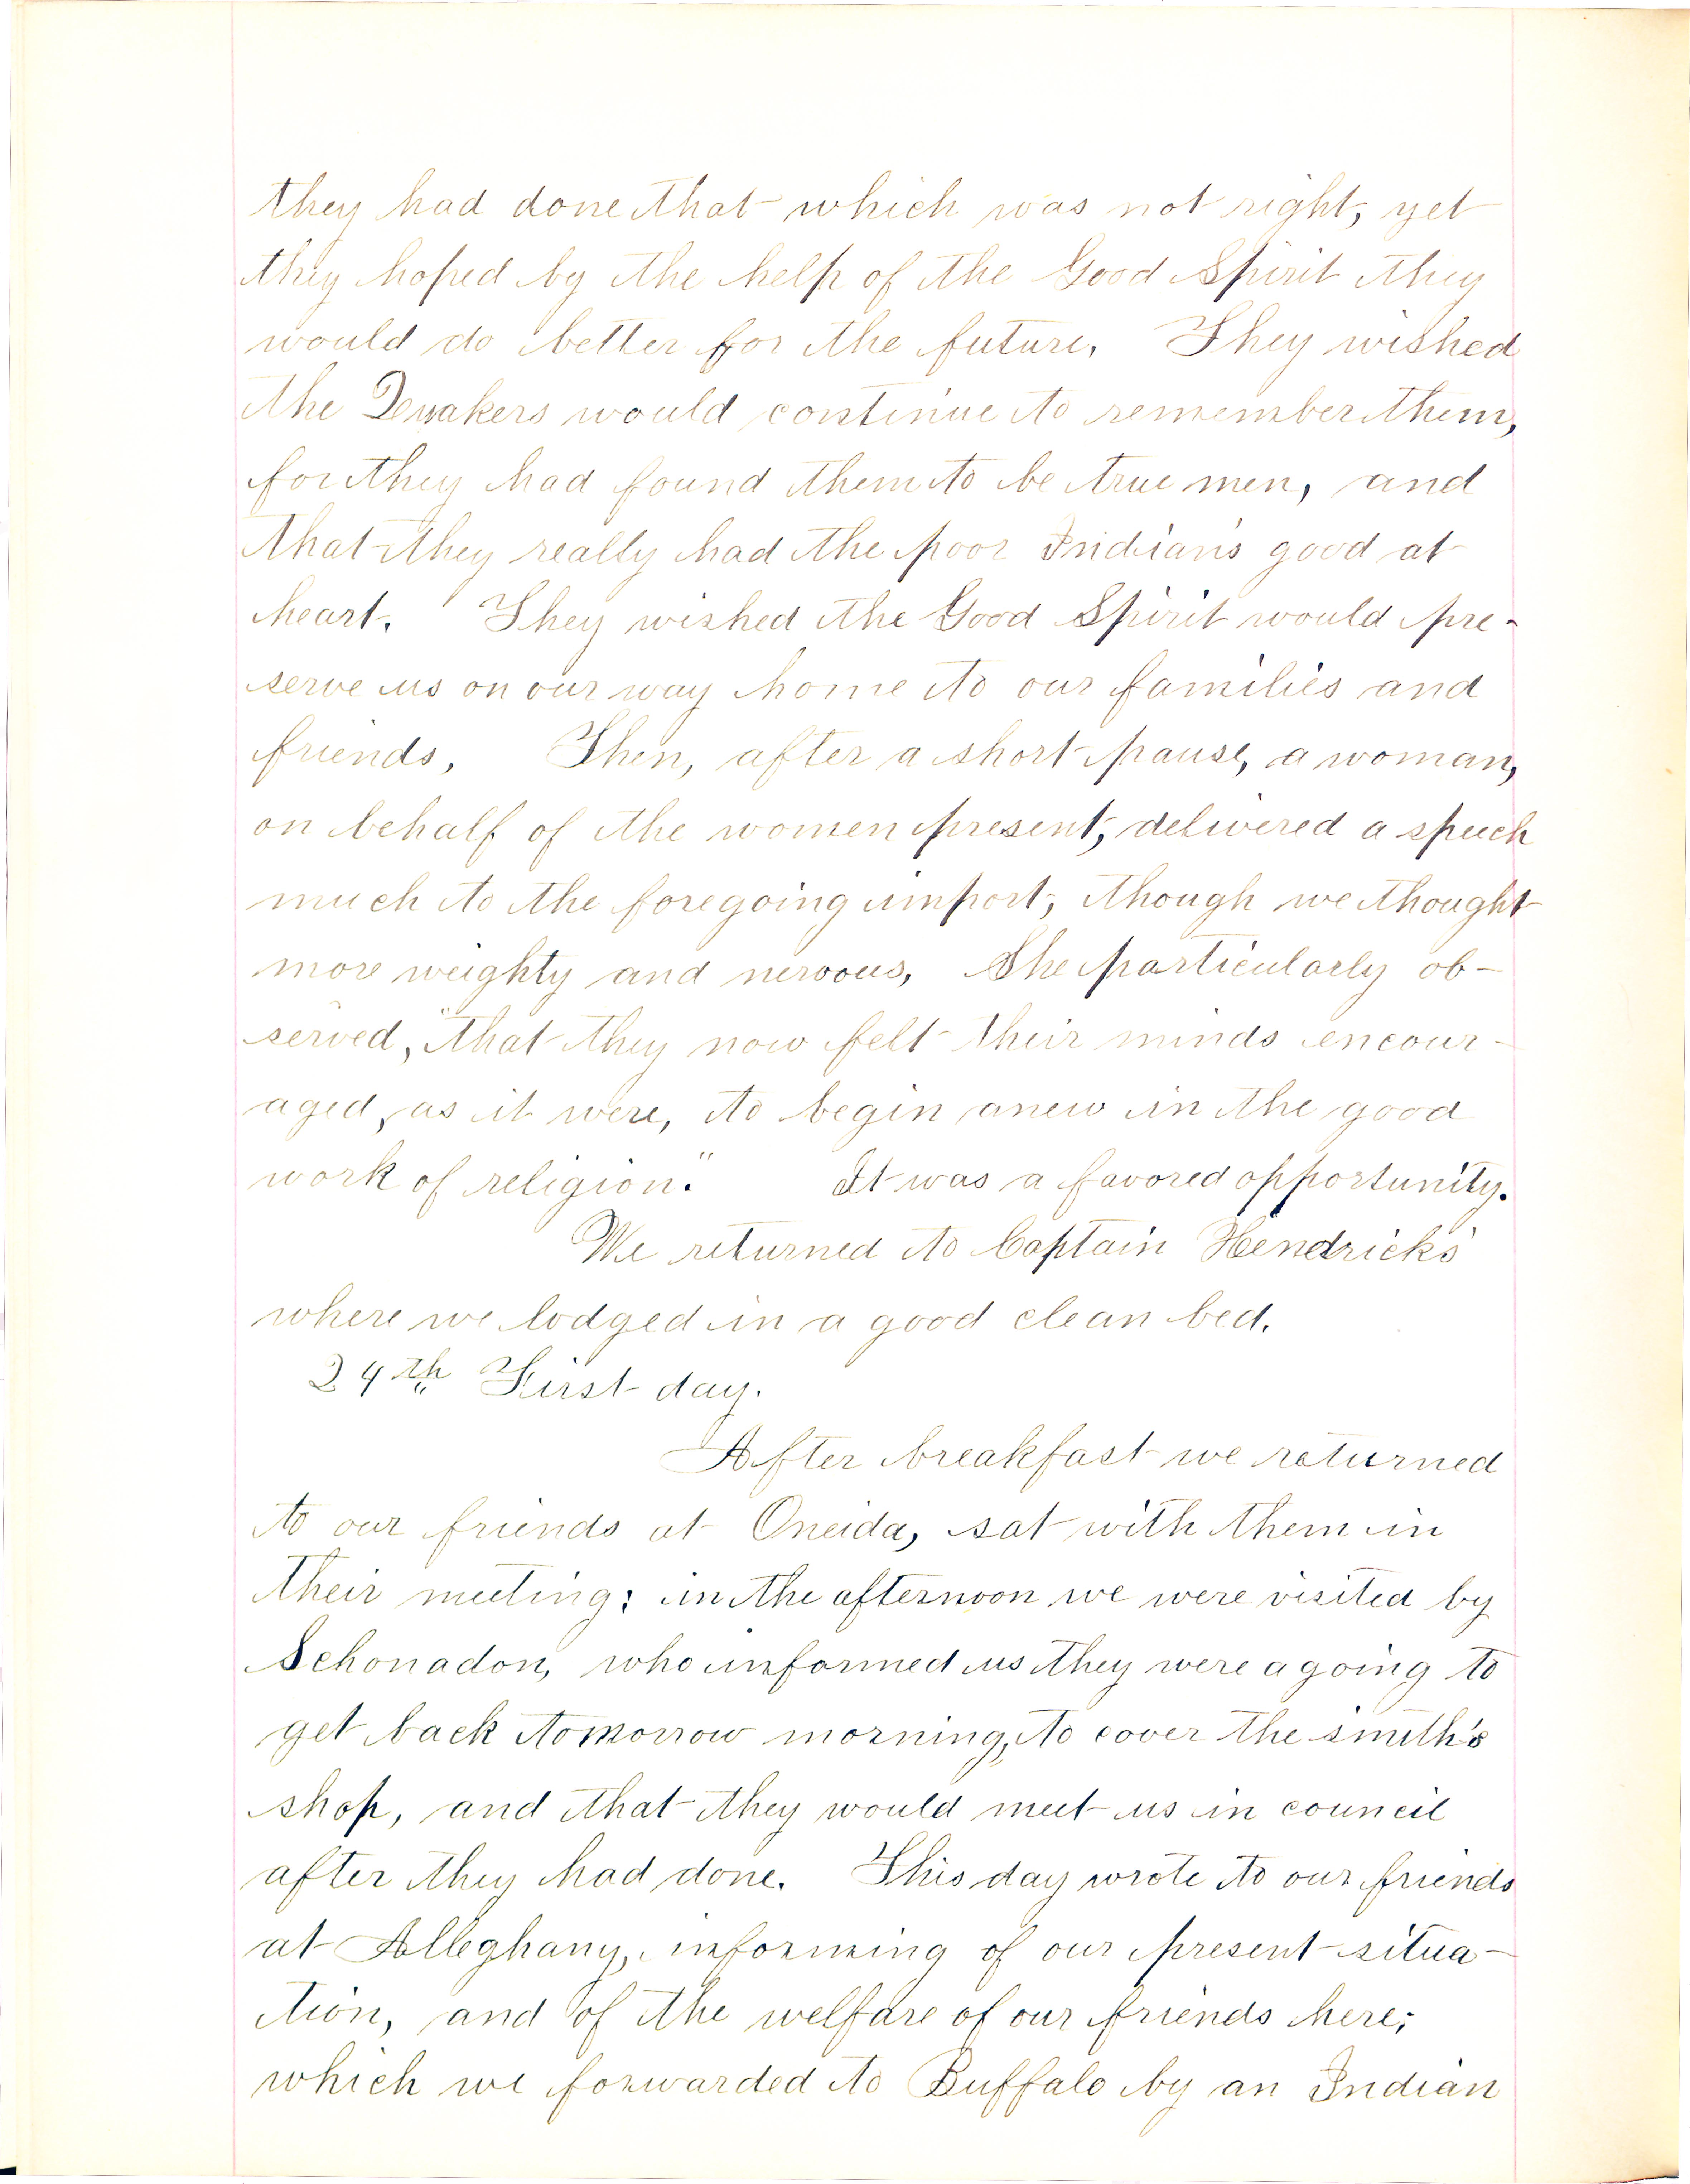 they had done that which was not right, yet
they hoped by the help of the Good Spirit they
would do better for the future. They wished
the Quakers would continue to remember them,
for they had found them to be true men, and
that they really had the poor Indian's good at
heart. They wished the Good Spirit would pre-
serve us on our way home to our families and
friends. Then, after a short pause, a woman,
on behalf of the women present, delivered a speech
much to the foregoing import, though we thought
more weighty and nervous. She particularly ob-
served, "that they now felt their minds encour-
aged, as it were, to begin anew in the good
work of religion." It was a favored opportunity.
We returned to Captain Hendrick's
where we lodged in a good clean bed.
24th First day.
After breakfast we returned
to our friends at Oneida, sat with them in
their meeting; in the afternoon we were visited by
Schonadon, who informed us they were a going to
get back tomorrow morning, to cover the smith's
shop, and that they would meet us in council
after they had done. This day wrote to our friends
at Alleghany, informing of our present situa-
tion, and of the welfare of our friends here;
which we forwarded to Buffalo by an Indian